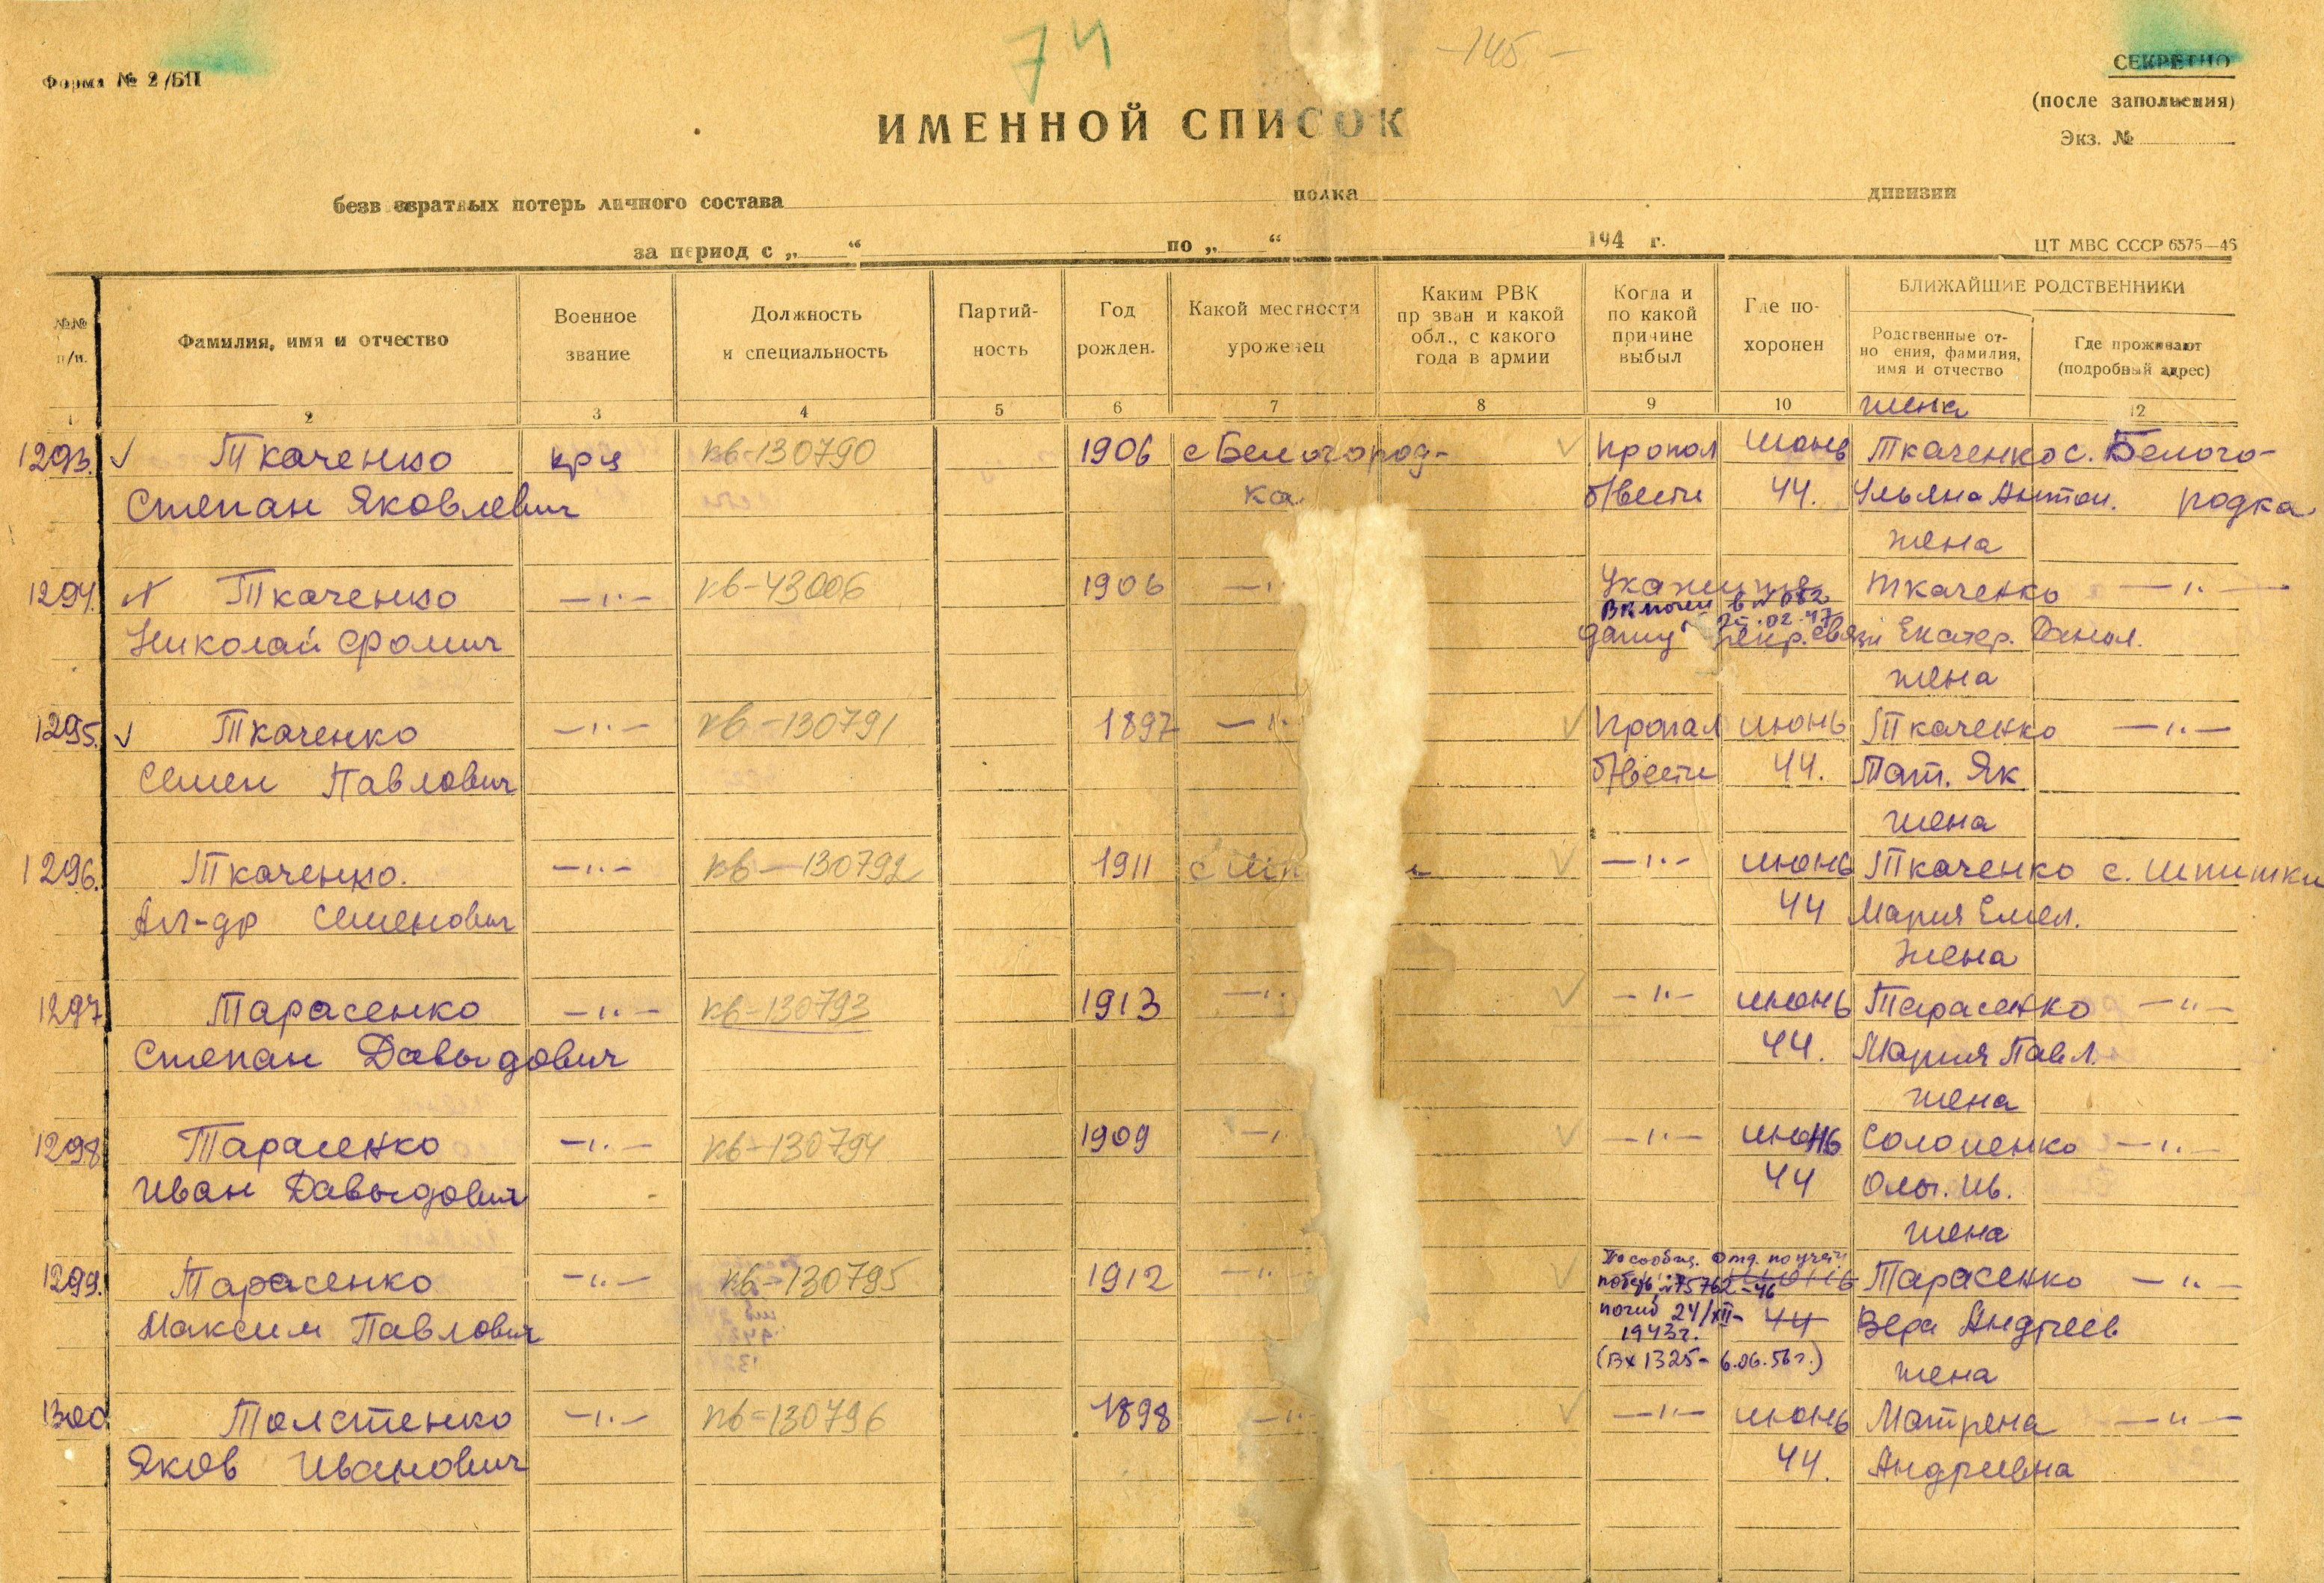 74
-145-
Форма № 2/БП
СЕКРЕТНО
(после заполнения)
Экз. №
ИМЕННОЙ СПИСОК
безвозвратных потерь личного состава полка дивизии
за период с „ “ по „ “ 194 г.
ЦТ МВС СССР 6575—46
№№ п/п.
Фамилия, имя и отчество
Военное звание
Должность и специальность
Партийность
Год рожден.
Какой местности уроженец
Каким РВК призван и какой обл., с какого года в армии
Когда и по какой причине выбыл
Где похоронен
БЛИЖАЙШИЕ РОДСТВЕННИКИ
Родственные отношения, фамилия, имя и отчество
Где проживают (подробный адрес)
1 2 3 4 5 6 7 8 9 10 12
жена
1293. Ткаченко кр-ц кв-130790 1906 с Белогород- пропал июнь Ткаченко с. Белого-
Степан Яковлевич ка б/вести 44. Ульяна Антон. родка
жена
1294. Ткаченко —"— кв-43006 1906 —" Ткаченко —"—
Включен в № 082
25.02.47
Николай Фомич Екатер. Данил.
жена
1295. Ткаченко —"— кв-130791 1897 —" Пропал июнь Ткаченко —"—
Семен Павлович б/вести 44. Мат. Як
жена
1296. Ткаченко. —"— кв-130792 1911 —"— июнь Ткаченко с. Шпитьки
Ал-др Семенович 44 Мария Емел.
жена
1297 Тарасенко —"— кв-130793 1913 —" —"— июнь Тарасенко —"—
Степан Давыдович 44. Мария Павл.
жена
1298 Тарасенко —"— кв-130794 1909 —" —"— июнь Солопенко —"—
Иван Давыдович 44 Ольг. Ив.
жена
По сообщ. отд. по учету
1299. Тарасенко —"— кв-130795 1912 —" потерь №75762-46 июнь Тарасенко —"—
погиб 24/XII-
Максим Павлович 1943г. 44 Вера Андреев
(Вх 1325- 6.06.56г.)
жена
1300 Толстенко —"— кв-130796 1898 —" —"— июнь Матрена —"—
Яков Иванович 44. Андреевна